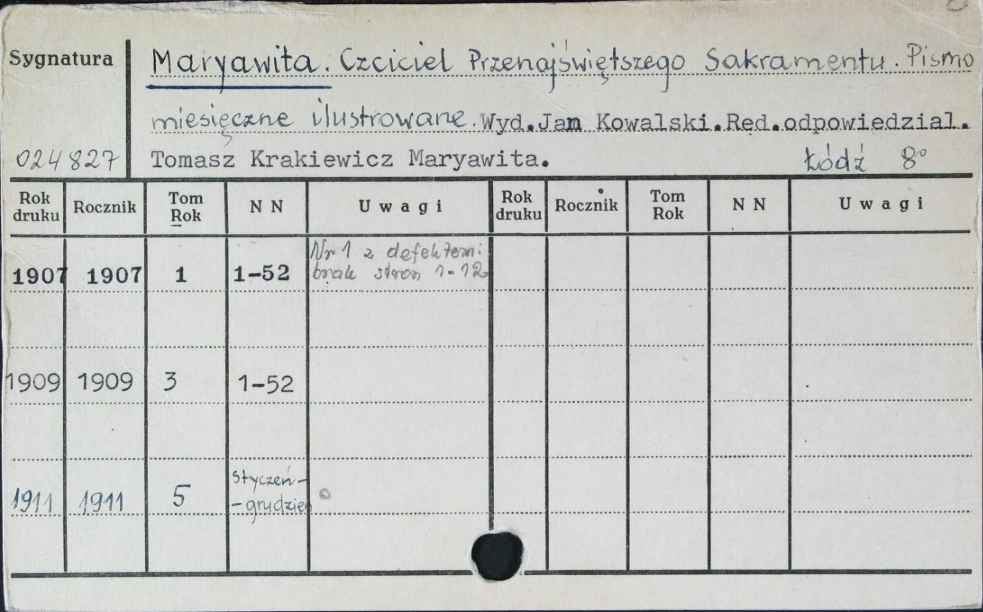 Sygnatura
Maryawita. Czciciel Przenajświętszego Sakramentu. Pismo
miesięczne ilustrowane. Wyd.Jan Kowalski.Red.odpowiedzial.
024827 Tomasz Krakiewicz Maryawita. Łódź 8°
Rok druku Rocznik Tom Rok N N Uwagi Rok druku Rocznik Tom Rok N N Uwagi
1907 1907 1 1-52 Nr 1 z defektem: brak stron 1-12
1909 1909 3 1-52
1911 1911 5 styczeń- -grudzień